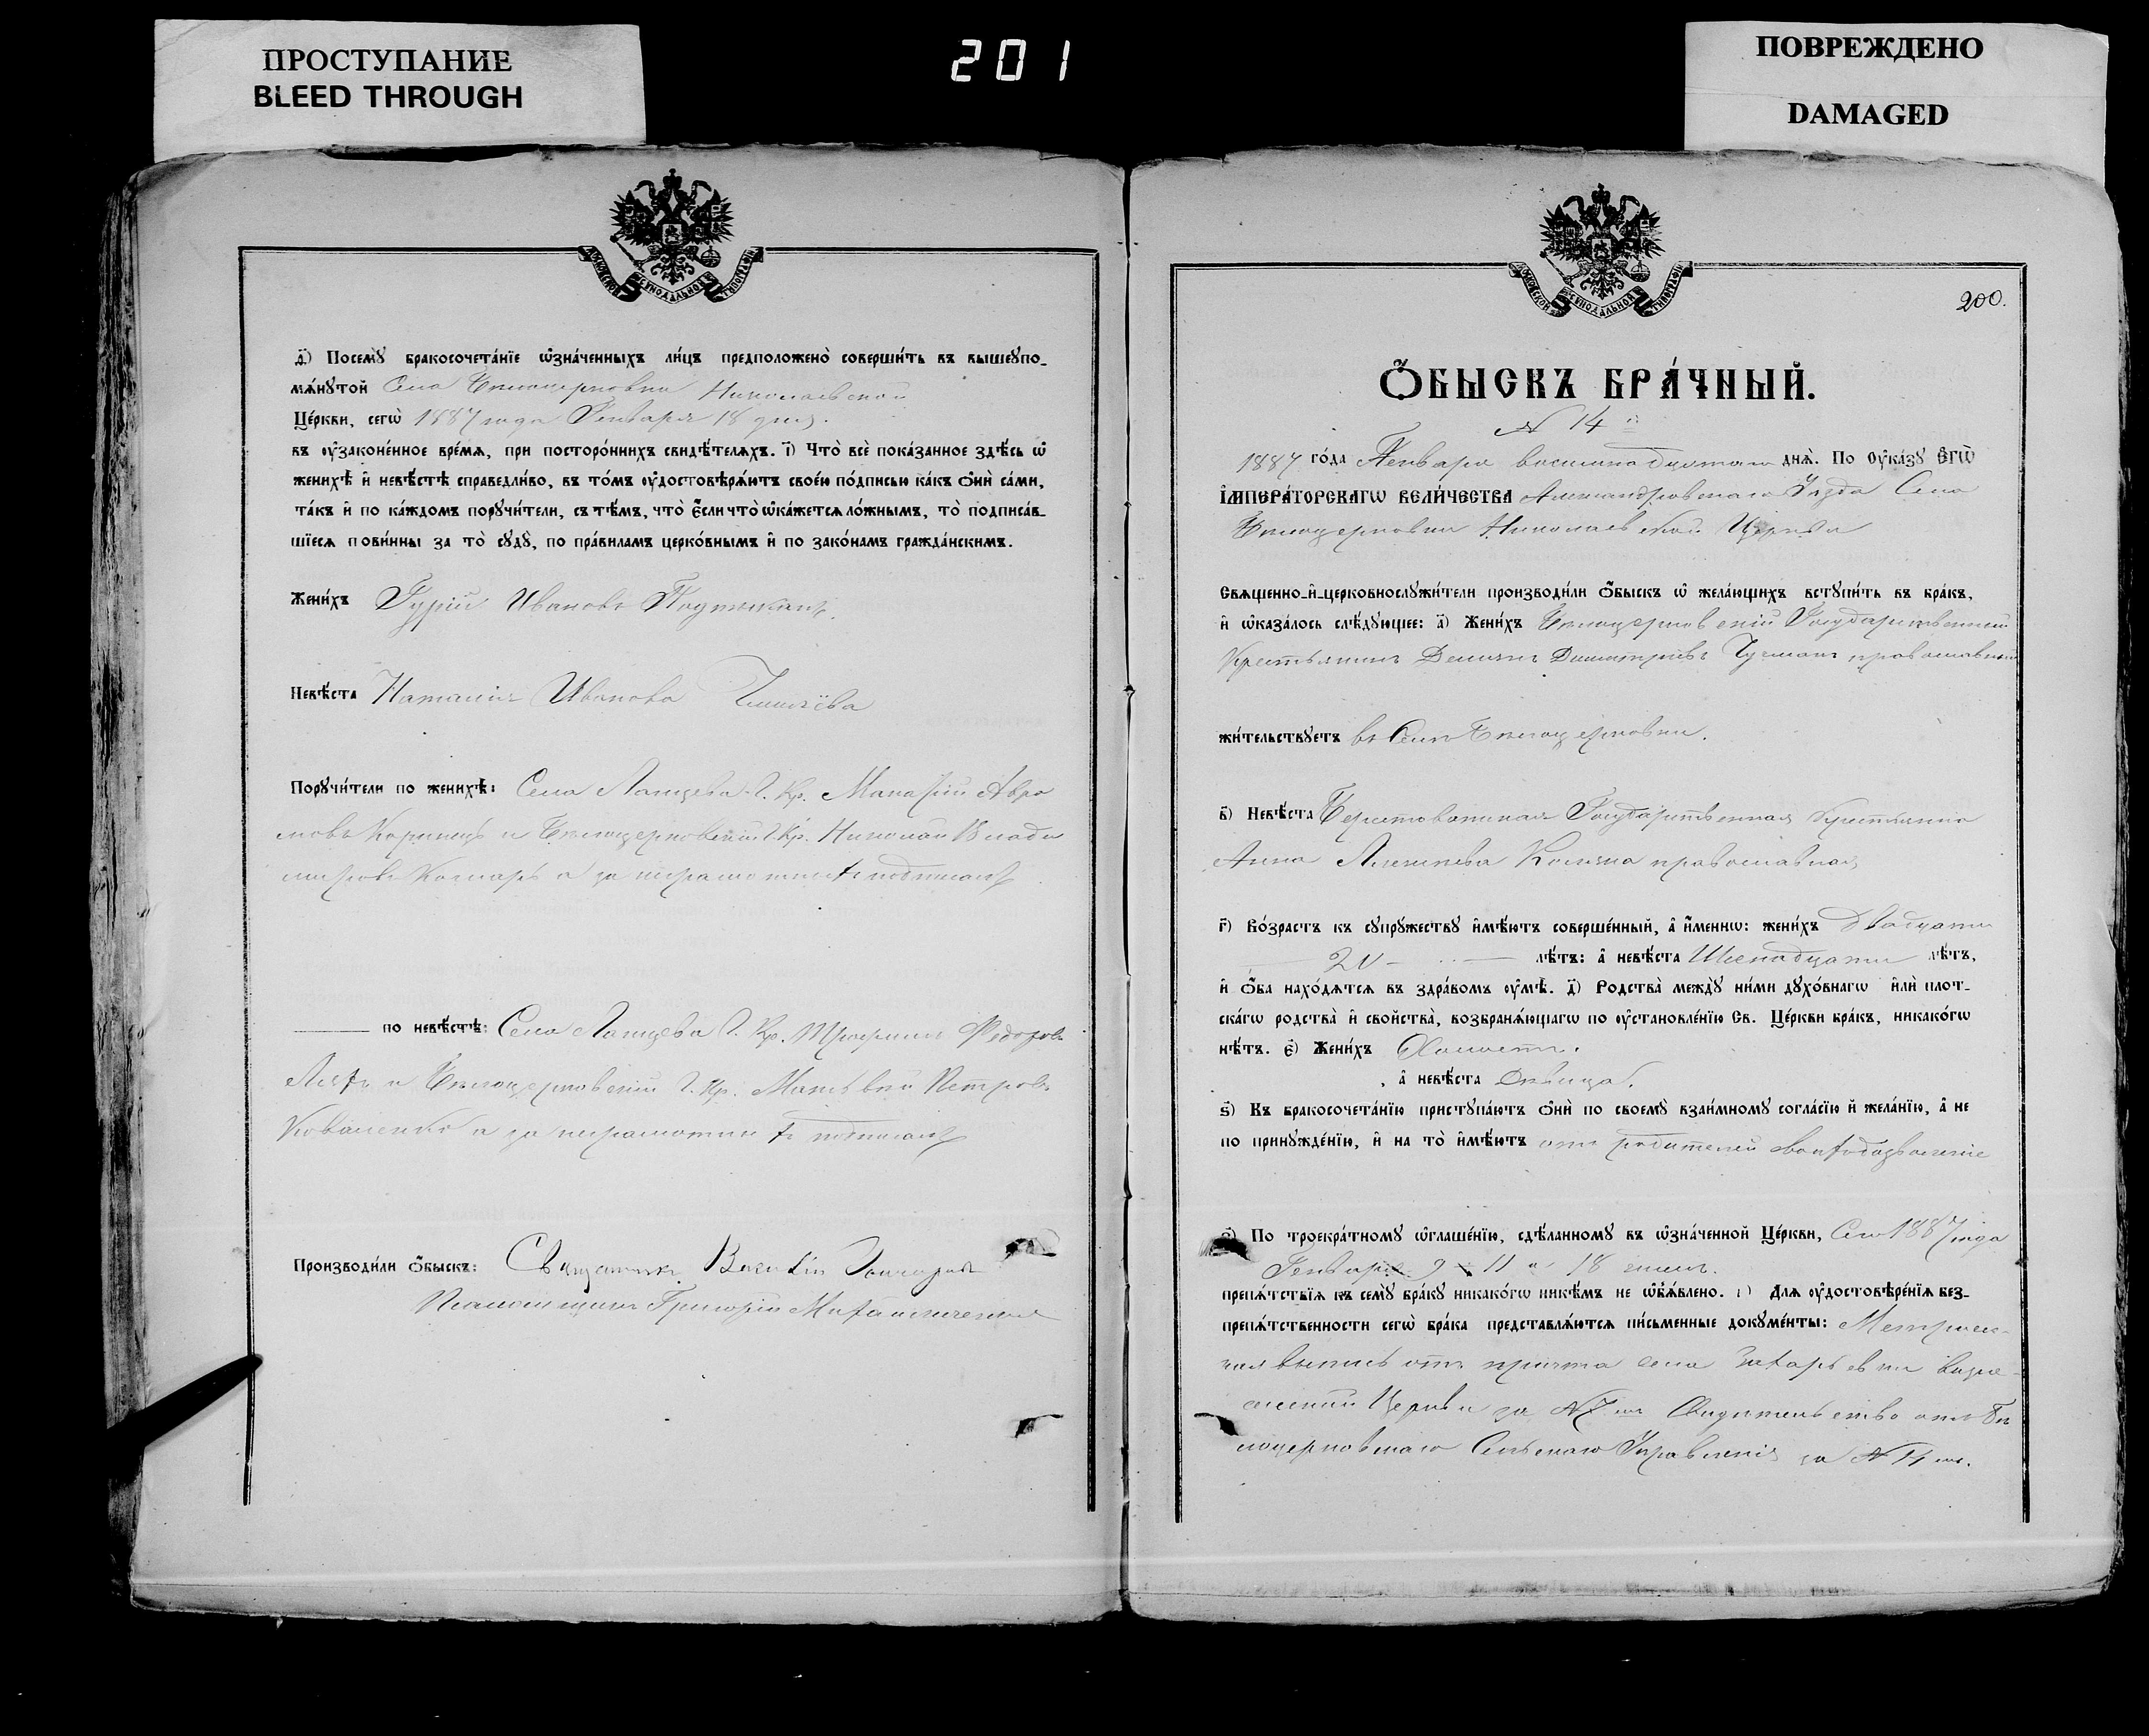 ПРОСТУПАНИЕ
BLEED THROUGH
201
ПОВРЕЖДЕНО
DAMAGED
МОСКОВСКОЙ СѴНОДАЛЬНОЙ ТИПОГРАФІИ
д҃і) Посемꙋ̀ бракосочета́нїе ѡ҆зна́ченныхъ ли́цъ предположено̀ соверши́ть въ вышеꙋпо-
мѧ́нꙋтой Села Бѣлоцерковки Николаевской
Це́ркви, сегѡ̀ 1887 года Генваря 18 дня.
въ ᲂу҆зако́ненное вре́мѧ, при посторо́ннихъ свидѣ́телѧхъ. і҃) Что̀ всѐ пока́занное здѣ́сь ѡ҆
женихѣ̀ и҆ невѣ́стѣ справедли́во, въ то́мъ ᲂу҆достовѣрѧ́ютъ свое́ю по́дписью ка́къ ѻ҆нѝ са́ми,
та́къ и҆ по ка́ждомъ порꙋчи́тели, съ тѣ́мъ, что̀ є҆́сли что̀ ѡ҆ка́жетсѧ ло́жнымъ, то̀ подписа́в-
шїесѧ пови́нны за то̀ сꙋдꙋ̀, по пра́виламъ церко́внымъ и҆ по зако́намъ гражда́нскимъ.
Жени́хъ Гурій Ивановъ
Невѣ́ста Наталія Иванова
Порꙋчи́тели по женихѣ̀: Села Ланцева Г. Кр. Макарій Авра
мовъ Коринецъ и Бѣлоцерковскій Г. Кр. Николай Влади
міровъ а за неграмотностью подписался
по невѣ́стѣ: Села Ланцева Г. Кр. Трофимъ Федоровъ
Ляхъ и Бѣлоцерковскій Г. Кр. Петровъ
Коваленко а за неграмотностью подписался
Производи́ли ѻ҆́быскъ: Священникъ Василій
Псаломщикъ Григорій
МОСКОВСКОЙ СѴНОДАЛЬНОЙ ТИПОГРАФІИ
200.
Ѻ҆́БЫСКЪ БРА́ЧНЫЙ.
№ 14й
1887 го́да Генваря восемнадцатаго днѧ̀. По ᲂу҆ка́зꙋ Є҆ГѠ̀
І҆МПЕРА́ТОРСКАГѠ ВЕЛИ́ЧЕСТВА Александровскаго Уѣзда Села
Бѣлоцерковки Николаевской Церкви
Свѧще́нно-и҆-церковнослꙋжи́тели производи́ли ѻ҆́быскъ ѡ҆ жела́ющихъ встꙋпи́ть въ бра́къ,
и҆ ѡ҆каза́лось слѣ́дꙋющее: а҃) Жени́хъ Бѣлоцерковскій Государственный
Крестьянинъ Демьянъ Димитріевъ православный
жи́тельствꙋетъ въ Селѣ Бѣлоцерковки.
в҃) Невѣ́ста Берестоватская Государственная Крестьянка
Анна Алексѣева православная
г҃) Во́зрастъ къ сꙋпрꙋ́жествꙋ и҆мѣ́ютъ соверше́нный, а҆ и҆́меннѡ: жени́хъ Двадцати
лѣ́тъ: а҆ невѣ́ста лѣ́тъ,
и҆ ѻ҆́ба нахо́дѧтсѧ въ здра́вомъ ᲂу҆мѣ̀. д҃) Родства̀ междꙋ̀ ни́ми дꙋхо́внагѡ и҆лѝ плот-
ска́гѡ родства̀ и҆ сво́йства̀, возбранѧ́ющагѡ по ᲂу҆становле́нїю Св. Це́ркви бра́къ, никако́гѡ
нѣ́тъ. є҃) Жени́хъ Холостъ.
, а҆ невѣ́ста Дѣвица.
ѕ҃) Къ бракосочета́нїю пристꙋпа́ютъ ѻ҆нѝ по своемꙋ̀ взаи́мномꙋ согла́сїю и҆ жела́нїю, а҆ не
по принꙋжде́нїю, и҆ на то̀ и҆мѣ́ютъ отъ родителей своихъ дозволеніе
з҃) По троекра́тномꙋ ѡ҆глаше́нїю, сдѣ́ланномꙋ въ ѡ҆зна́ченной Це́ркви, Сего 1887 года
Генваря 9 11 и 18 чиселъ.
препѧ́тствїѧ къ семꙋ̀ бра́кꙋ никако́гѡ никѣ́мъ не ѡ҆б̾ѧ́влено. и҃) Длѧ ᲂу҆достовѣре́нїѧ без-
препѧ́тственности сегѡ̀ бра́ка представлѧ́ютсѧ пи́сьменные докꙋме́нты: Метричес-
кая выпись отъ причта села Захарьевки Возне-
сенской Церкви за № Свидѣтельство отъ Бѣ
лоцерковскаго Сельскаго Управленія за №